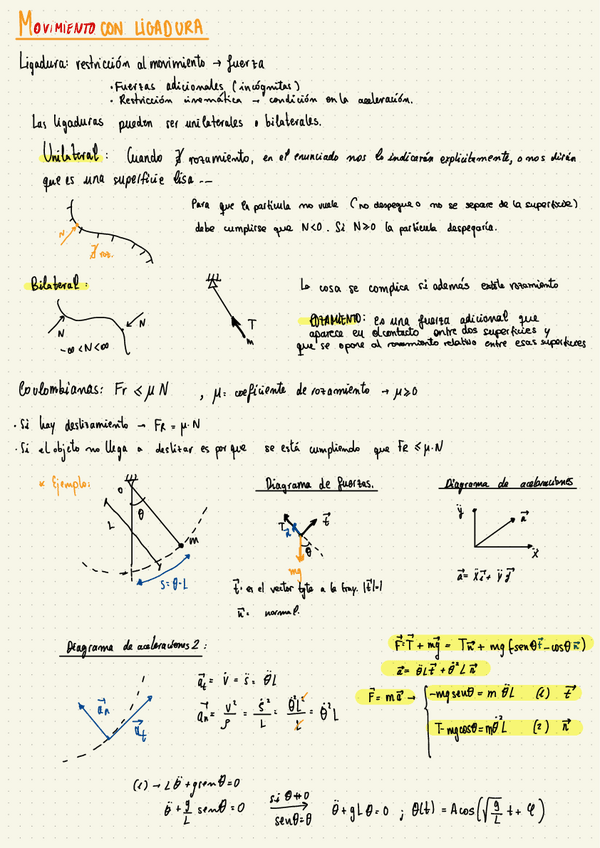 MOVIMIENTO CON LIGADURA
Ligadura: restricción al movimiento → fuerza
· Fuerzas adicionales (incógnitas)
· Restricción cinemática → condición en la aceleración.
Las ligaduras pueden ser unilaterales o bilaterales.
Unilateral: Cuando ∄ rozamiento, en el enunciado nos lo indicarán explícitamente, o nos dirán
que es una superficie lisa --
Para que la partícula no vuele (no despegue o no se separe de la superficie)
debe cumplirse que N<0. Si N≥0 la partícula despegaría.
N
∄ roz.
Bilateral:
N
N
-∞<N<∞
T
m
La cosa se complica si además existe rozamiento
ROZAMIENTO: Es una fuerza adicional que
aparece en el contacto entre dos superficies y
que se opone al movimiento relativo entre esas superficies
Coulombianas: Fr ≤ μN , μ: coeficiente de rozamiento → μ≥0
· Si hay deslizamiento → FR = μ·N
· Si el objeto no llega a deslizar es porque se está cumpliendo que FR ≤ μ·N
* Ejemplo:
O
θ
L
m
s=θ·L
Diagrama de fuerzas.
T
n⃗
t⃗
θ
mg
t⃗: es el vector tgte a la tray. |t⃗|=1
n⃗: normal.
Diagrama de aceleraciones
ÿ
a⃗
ẍ
a⃗= ẍi⃗+ ÿj⃗
Diagrama de aceleraciones 2:
a⃗n
a⃗t
a⃗t = v̇ = s̈ = θ̈L
a⃗n = v²/ρ = ṡ²/L = θ̇²L²/L = θ̇²L
F⃗=T⃗+mg⃗ = Tn⃗+mg(-senθt⃗-cosθn⃗)
a⃗= θ̈Lt⃗+θ̇²Ln⃗
F⃗=ma⃗ → -mgsenθ=m θ̈L (1) t⃗
T-mgcosθ=mθ̇²L (2) n⃗
(1) → Lθ̈+gsenθ=0
θ̈+g/L senθ=0 si θ→0 senθ≈θ → θ̈+gLθ=0 ; θ(t)=Acos(√(g/L) t+φ)